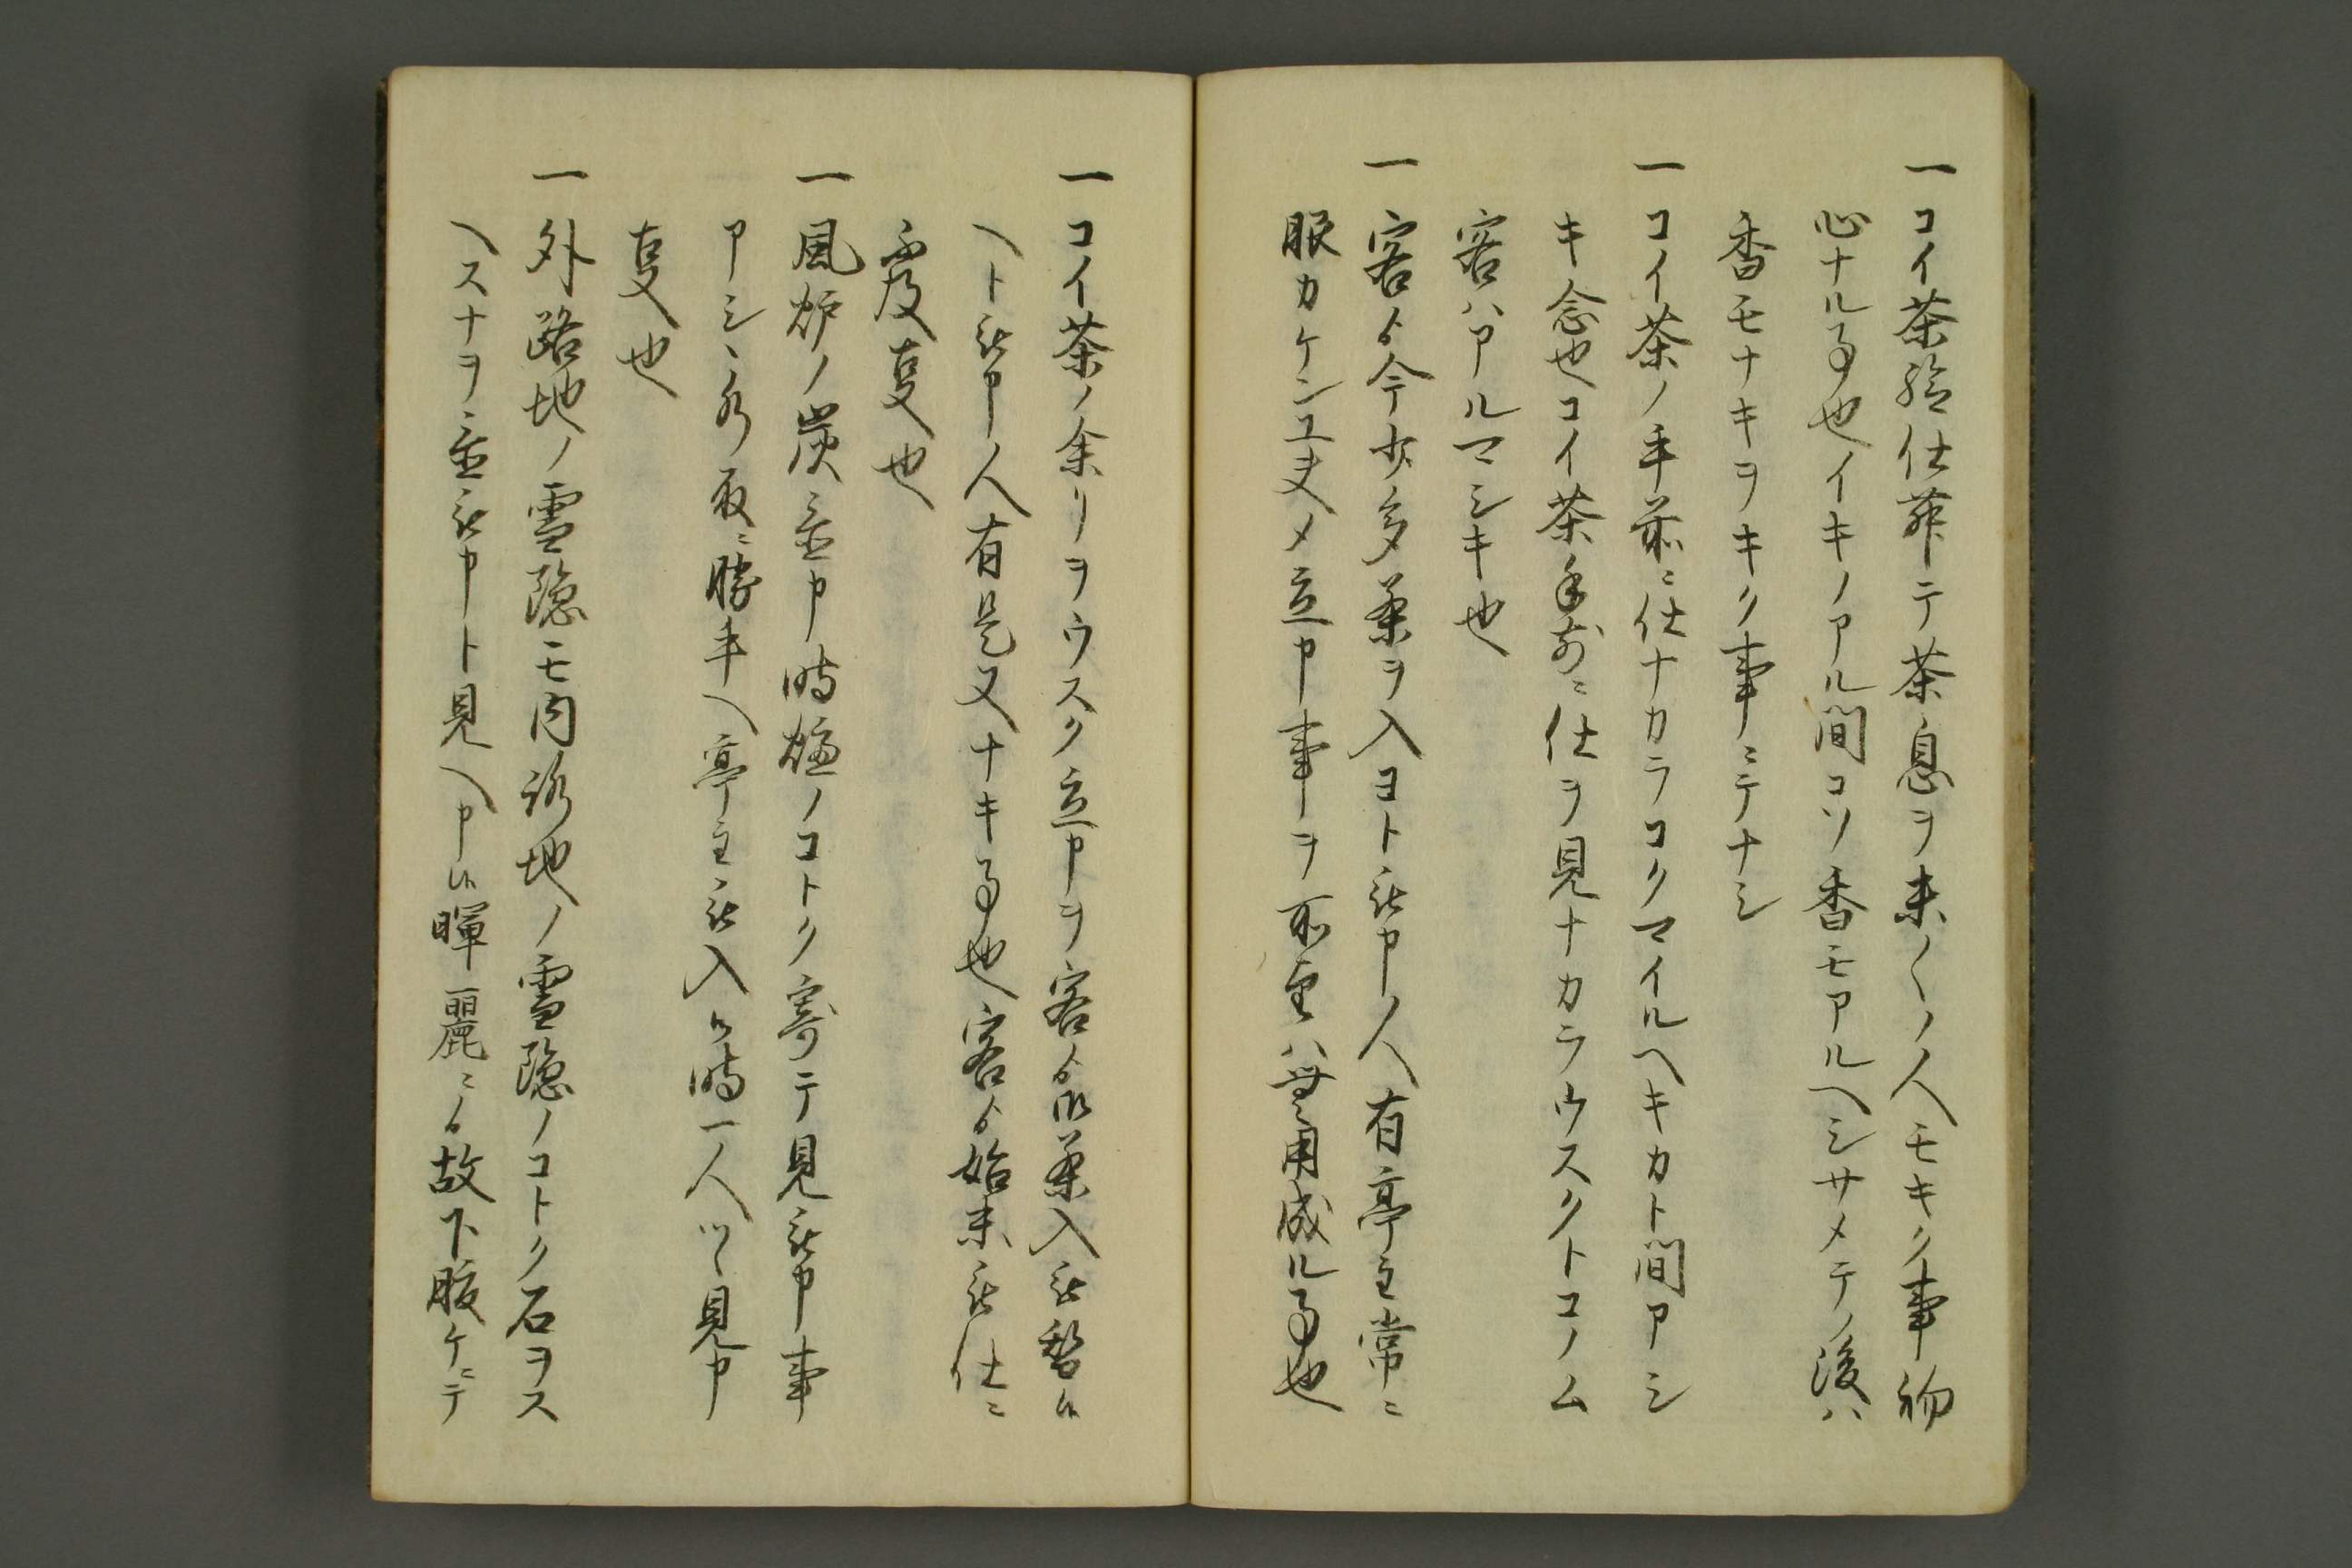 一コイ茶給仕廻テ茶息ヲ末〱ノ人モキク事初
心ナル事也イキノアル間コソ香モアルヘシサメテノ後ハ
香モナキヲキク事ニテナシ
一コイ茶ノ手前ニ仕ナカラコクマイルヘキカト問アシ
キ念也コイ茶手前ニ仕ヲ見ナカラウスクトコノム
客ハアルマシキ也
一客ゟ今少多茶ヲ入ヨト被申人有亭主常ニ
服カケンエ夫メ立申事ヲ所望ハ無用成ル事也
一コイ茶ノ余リヲウスク立申ヲ客ゟ御茶入被
ヘト被申人有是又ナキ事也客ゟ始末被仕ニ
不及叓也
一風炉ノ炭置申時炉ノコトク寄テ見被申事
アシヽ取ニ勝手ヘ亭主被入候時一人ツヽ見申
叓也
一外路地ノ雪隠モ内路地ノ雪隠ノコトク石ヲス
ヘスナヲ置被申ト見ヘ申候暉麗ニ故下腹ケニテ